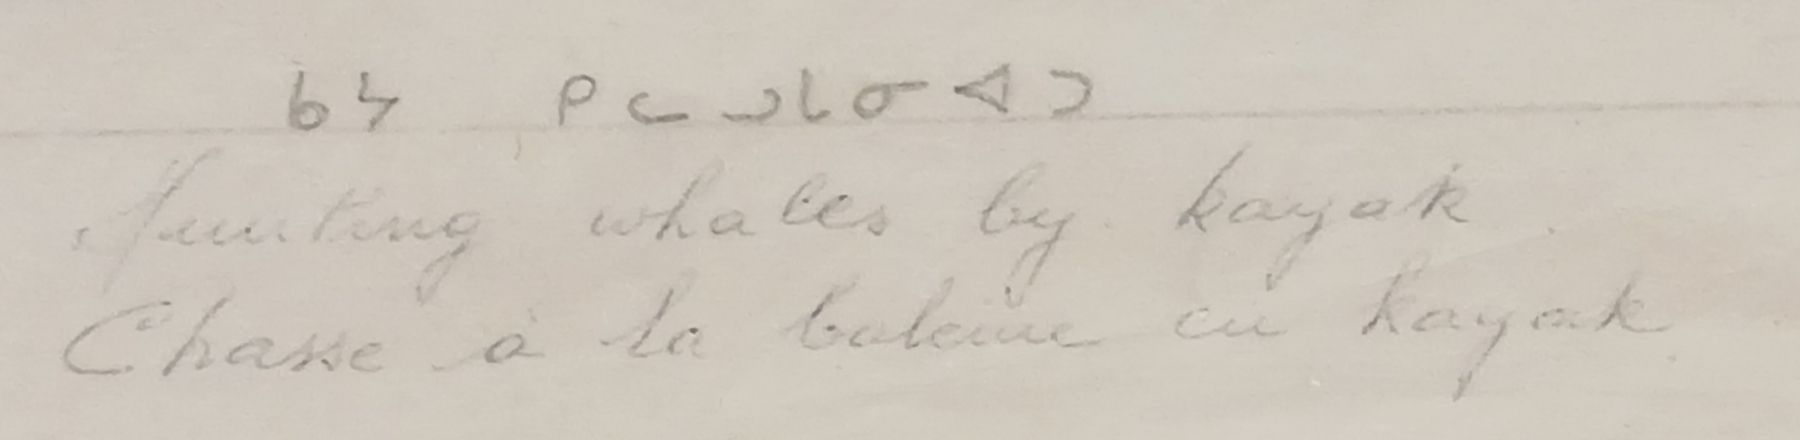 ᑲᔭ ᑭᓚᓗᒐᓂᐊᑐ
Hunting whales by kayak.
Chasse à la baleine en kayak.